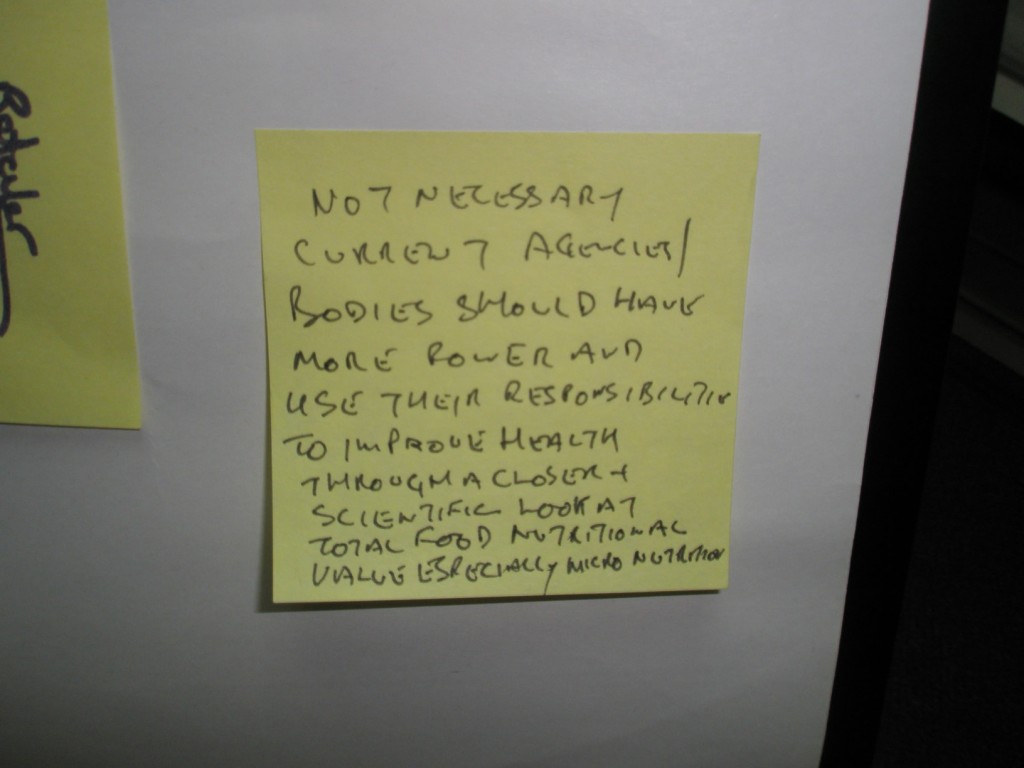 NOT NECESSARY
CURRENT AGENCIES/
BODIES SHOULD HAVE
MORE POWER AND
USE THEIR RESPONSIBILITIES
TO IMPROVE HEALTH
THROUGH A CLOSER +
SCIENTIFIC LOOK AT
TOTAL FOOD NUTRITIONAL
VALUE ESPECIALLY MICRO NUTRITION